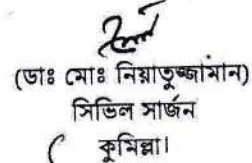 (ডাঃ মোঃ নিয়াতুজ্জামান)
সিভিল সার্জন
কুমিল্লা।